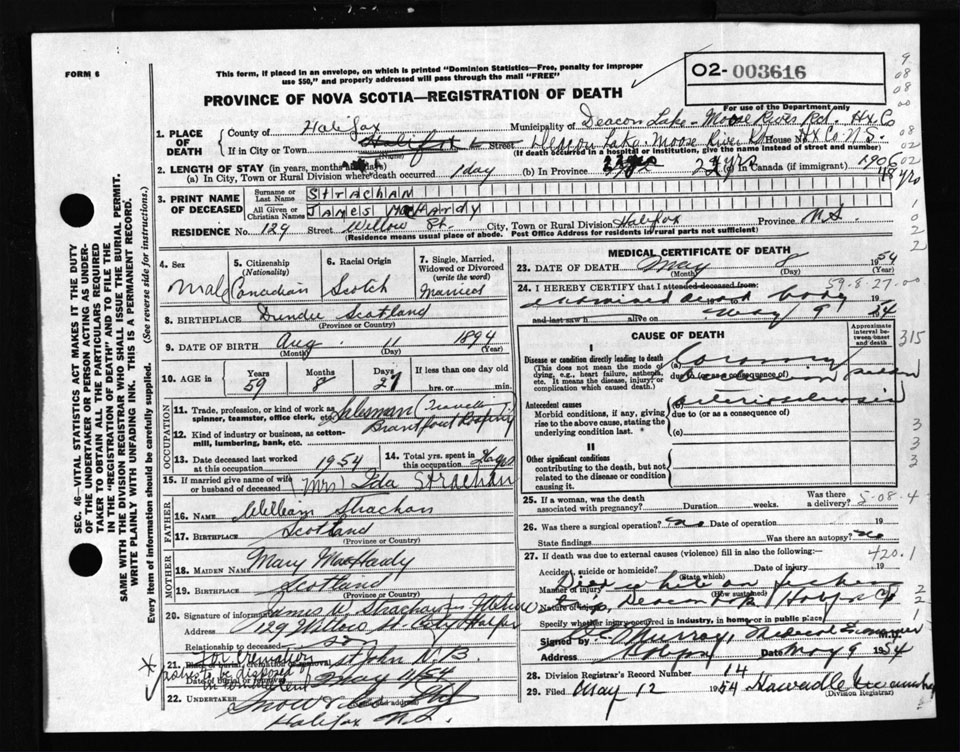 FORM 6
This form, if placed in an envelope, on which is printed "Dominion Statistics—Free, penalty for improper
use $50," and properly addressed will pass through the mail "FREE"
PROVINCE OF NOVA SCOTIA—REGISTRATION OF DEATH
02-003616
For use of the Department only
1. PLACE OF DEATH
County of Halifax Municipality of Deacon Lake - Moose River Rd. Hx. Co
If in City or Town Halifax (Name) Street Deacon Lake - Moose River Rd House No. Hx Co. N.S.
(If death occurred in a hospital or institution, give the name instead of street and number)
2. LENGTH OF STAY (in years, months and days)
(a) In City, Town or Rural Division where death occurred 1 day (b) In Province 22 yrs (c) In Canada (if immigrant) 1906
48 yrs
3. PRINT NAME OF DECEASED
Surname or Last Name STRACHAN
All Given or Christian Names JAMES MacHardy
RESIDENCE No. 129 Street Willow St. City, Town or Rural Division Halifax Province N.S.
(Residence means usual place of abode. Post Office Address for residents in rural parts not sufficient)
4. Sex Male
5. Citizenship (Nationality) Canadian
6. Racial Origin Scotch
7. Single, Married, Widowed or Divorced (write the word) Married
8. BIRTHPLACE Dundee Scotland
(Province or Country)
9. DATE OF BIRTH Aug. 11 1894
(Month) (Day) (Year)
10. AGE in Years 59 Months 8 Days 27 If less than one day
hrs. or min.
OCCUPATION
11. Trade, profession, or kind of work as spinner, teamster, office clerk, etc. Salesman (Travelling)
12. Kind of industry or business, as cotton-mill, lumbering, bank, etc. Brantford
13. Date deceased last worked at this occupation 1954
14. Total yrs. spent in this occupation
15. If married give name of wife or husband of deceased (Mrs) Ida Strachan
FATHER
16. NAME William Strachan
17. BIRTHPLACE Scotland
(Province or Country)
MOTHER
18. MAIDEN NAME Mary MacHardy
19. BIRTHPLACE Scotland
(Province or Country)
20. Signature of informant James W. Strachan
Address 129 Willow St. City Halifax
Relationship to deceased
21. Place of burial, cremation or removal For cremation St John N.B
Date of burial or removal May 11/54
* ashes to be disposed
22. UNDERTAKER Snow
(Name and address)
Halifax N.S.
MEDICAL CERTIFICATE OF DEATH
23. DATE OF DEATH May 8 1954
(Month) (Day) (Year)
24. I HEREBY CERTIFY that I attended deceased from 59-8-27-00
examined dead body 19
and last saw h alive on May 9 54
CAUSE OF DEATH
Approximate interval between onset and death
I
Disease or condition directly leading to death
(This does not mean the mode of dying, e.g., heart failure, asthenia, etc. It means the disease, injury, or complication which caused death.)
(a) Coronary
due to (or as a consequence of)
Antecedent causes
Morbid conditions, if any, giving rise to the above cause, stating the underlying condition last.
(b)
due to (or as a consequence of)
(c)
II
Other significant conditions
contributing to the death, but not related to the disease or condition causing it.
315
25. If a woman, was the death associated with pregnancy? Duration weeks. Was there a delivery? 5-08-4
26. Was there a surgical operation? no Date of operation 19
State findings Was there an autopsy? no
27. If death was due to external causes (violence) fill in also the following:— 420.1
Accident, suicide or homicide? (State which) Date of injury 19
Manner of injury Died while on fishing
(How sustained)
Nature of injury trip, Deacon Lake, Halifax Co
Specify whether injury occurred in industry, in home, or in public place
Signed by Murray, Medical Examiner M.D.
Address Halifax Date May 9 1954
28. Division Registrar's Record Number 14
29. Filed May 12 1954
(Division Registrar)
SEC. 46—VITAL STATISTICS ACT MAKES IT THE DUTY
OF THE UNDERTAKER OR PERSON ACTING AS UNDER-
TAKER TO OBTAIN ALL THE PARTICULARS REQUIRED
IN THE "REGISTRATION OF DEATH" AND TO FILE THE
SAME WITH THE DIVISION REGISTRAR WHO SHALL ISSUE THE BURIAL PERMIT.
WRITE PLAINLY WITH UNFADING INK. THIS IS A PERMANENT RECORD.
Every item of information should be carefully supplied. (See reverse side for instructions.)